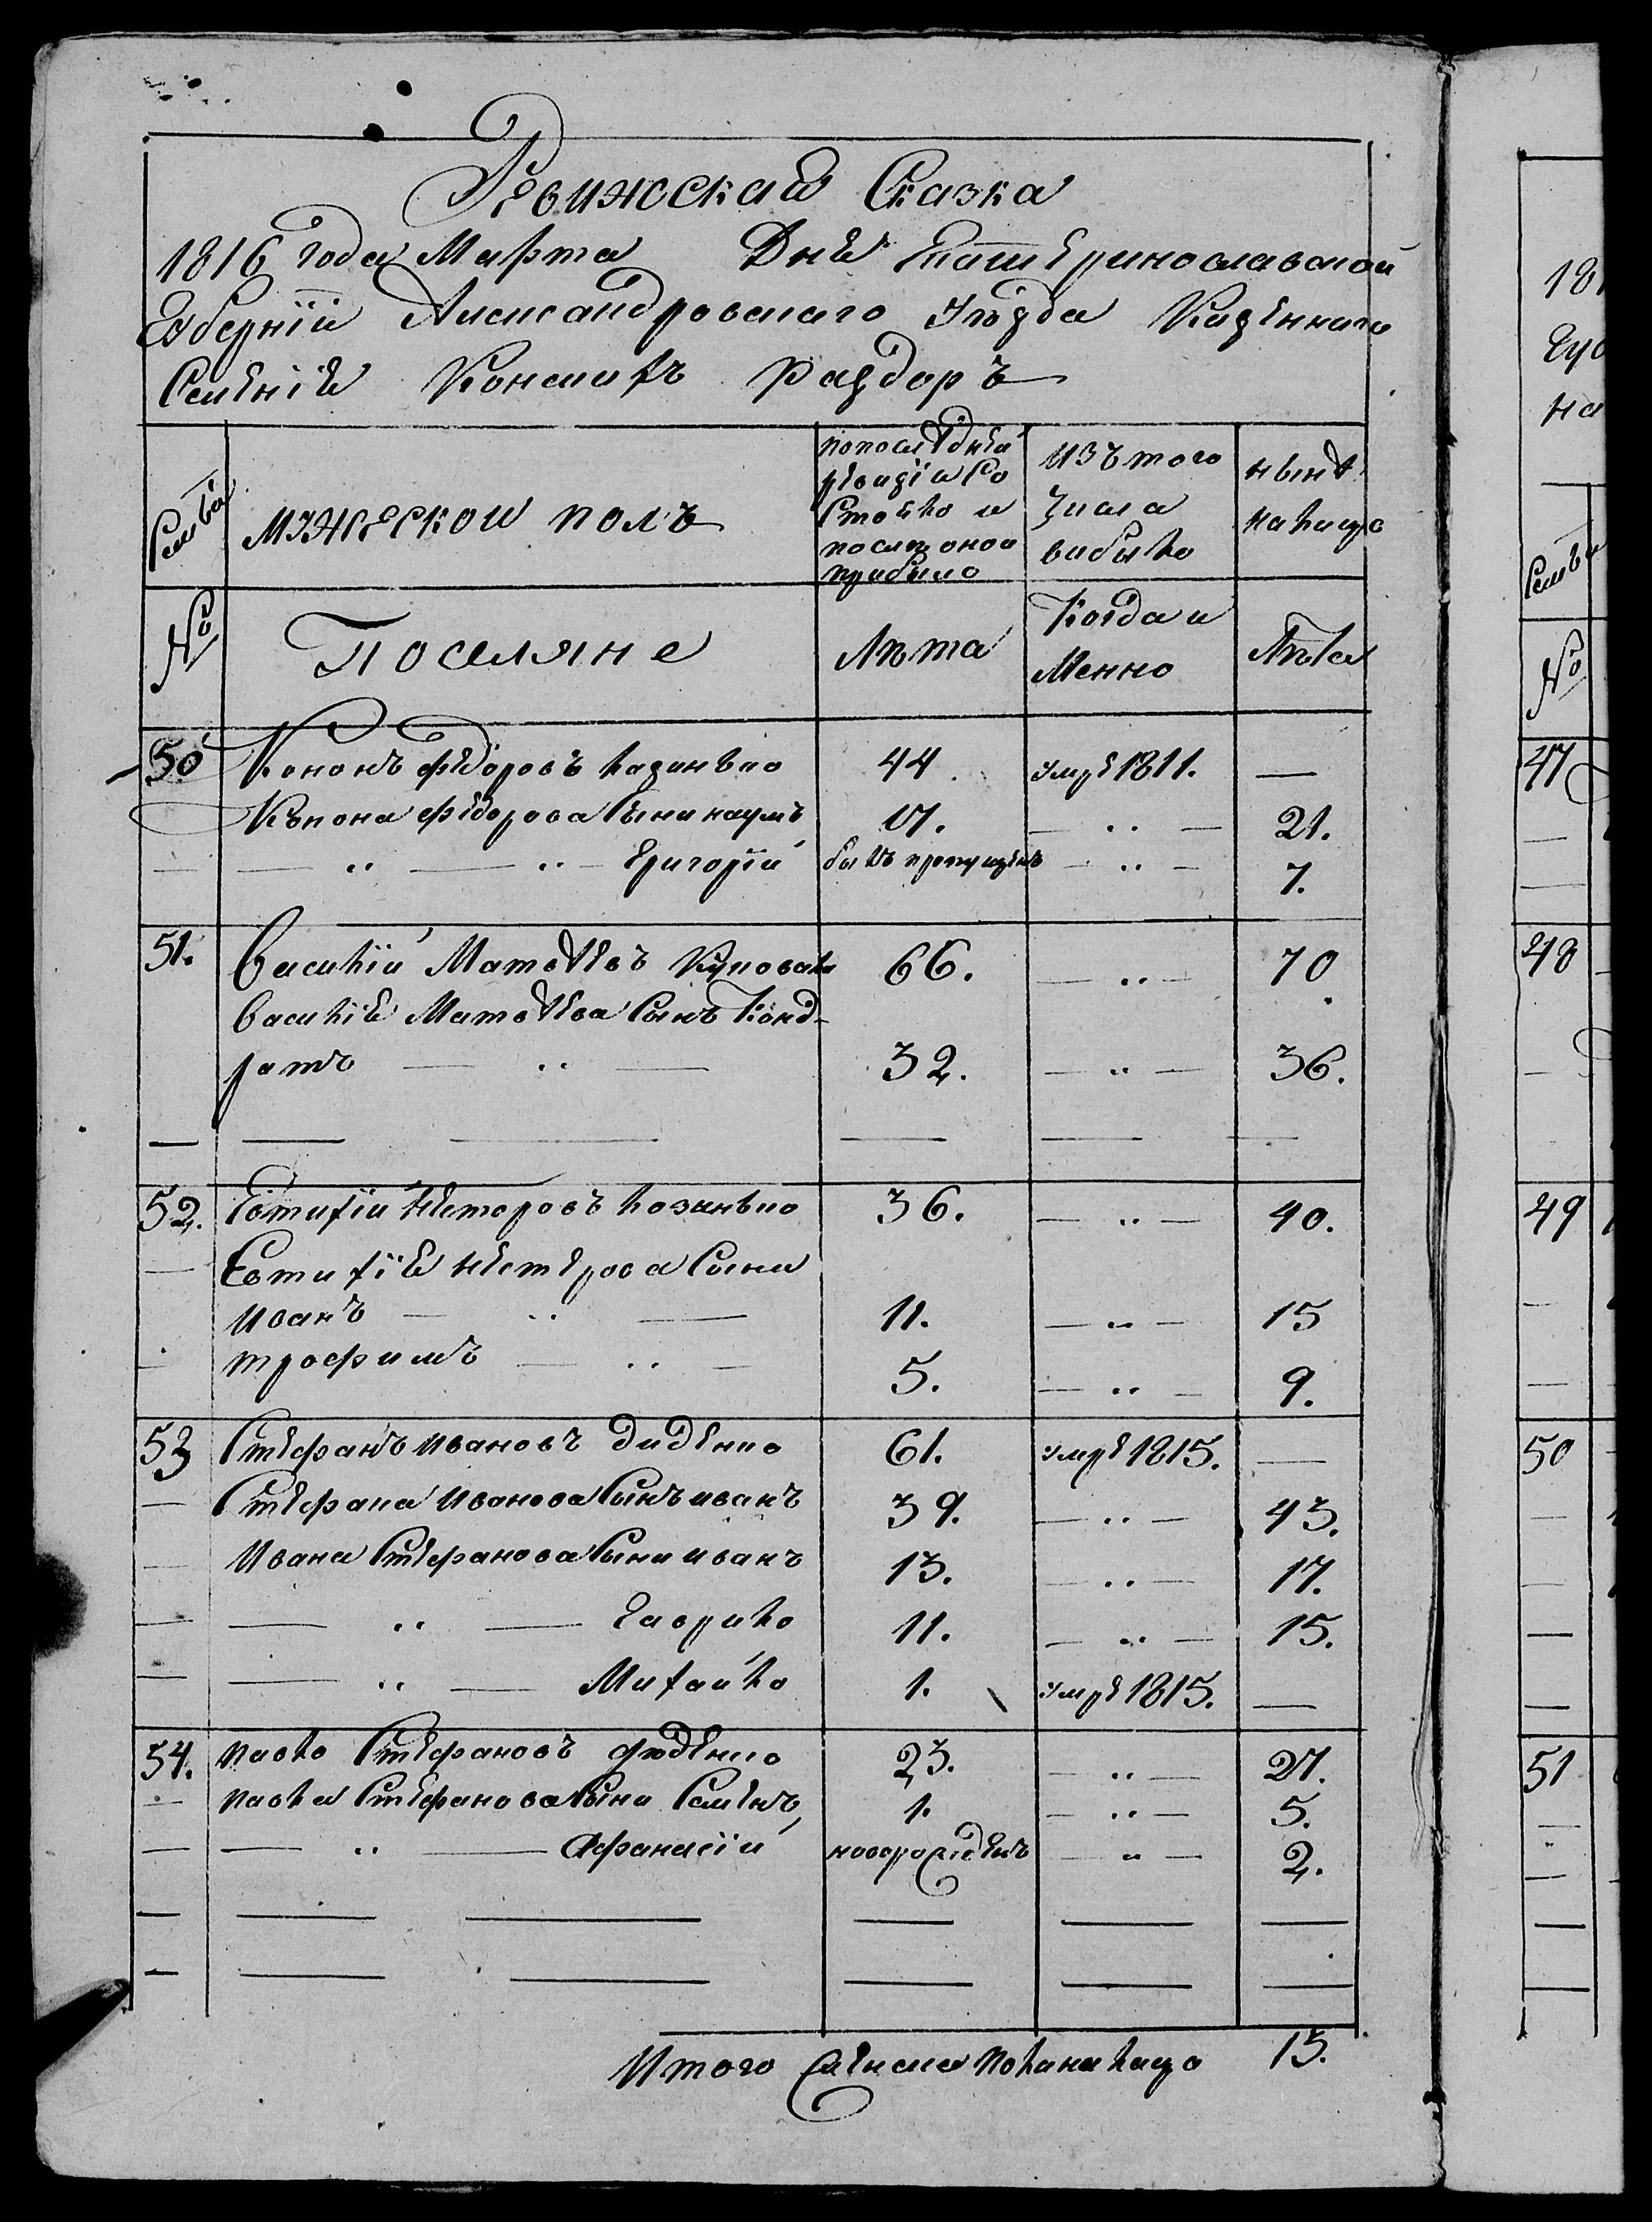 Ревижская Сказка
1816 года Марта Дня Екатеринославской
Губернїи Александровскаго уѣзда Казеннаго
Селенїя Конскихъ Раздоръ
Семьи
мужескои полъ
попослѣдней
ревизїи Со
Стояло и
послѣ оной
прибыло
изъ того
числа
выбыло
нынѣ
на лицо
№
Поселяне
Лѣта
Когда и
Менно
Лѣта
50 Кононъ Федоровъ 44. умре 1811. —
Конона Федорова Сыни наумъ 17. — „ — 21.
— — „ — „ — Григорїй былъ пропущенъ — „ — 7.
51. Василїй Матвѣевъ 66. — „ — 70
Василїя Матвѣева Сынъ Конд-
ратъ — „ — 32. — „ — 36.
— — — — — —
52. Евтихїй Несторовъ 36. — „ — 40.
— Евтихїя Нестерова Сыни
иванъ — „ — 11. — „ — 15
— трофимъ — „ — 5. — „ — 9.
53 Стефанъ ивановъ диденко 61. умре 1815. —
— Стефана иванова Сынъ иванъ 39. — „ — 43.
— Ивана Стефанова Сыни иванъ 13. — „ — 17.
— — „ — Гаврило 11. — „ — 15.
— — „ — Михайло 1. умре 1815. —
54. павло Стефановъ 23. — „ — 27.
— павла Стефанова Сыни Семенъ 1. — „ — 5.
— — „ — Афанасїй новорожденъ — „ — 2.
— — — — — —
— — — — — —
Итого мужеска пола на лицо 15.
181
Губ
на
Семьи
№
47
48
49
50
51